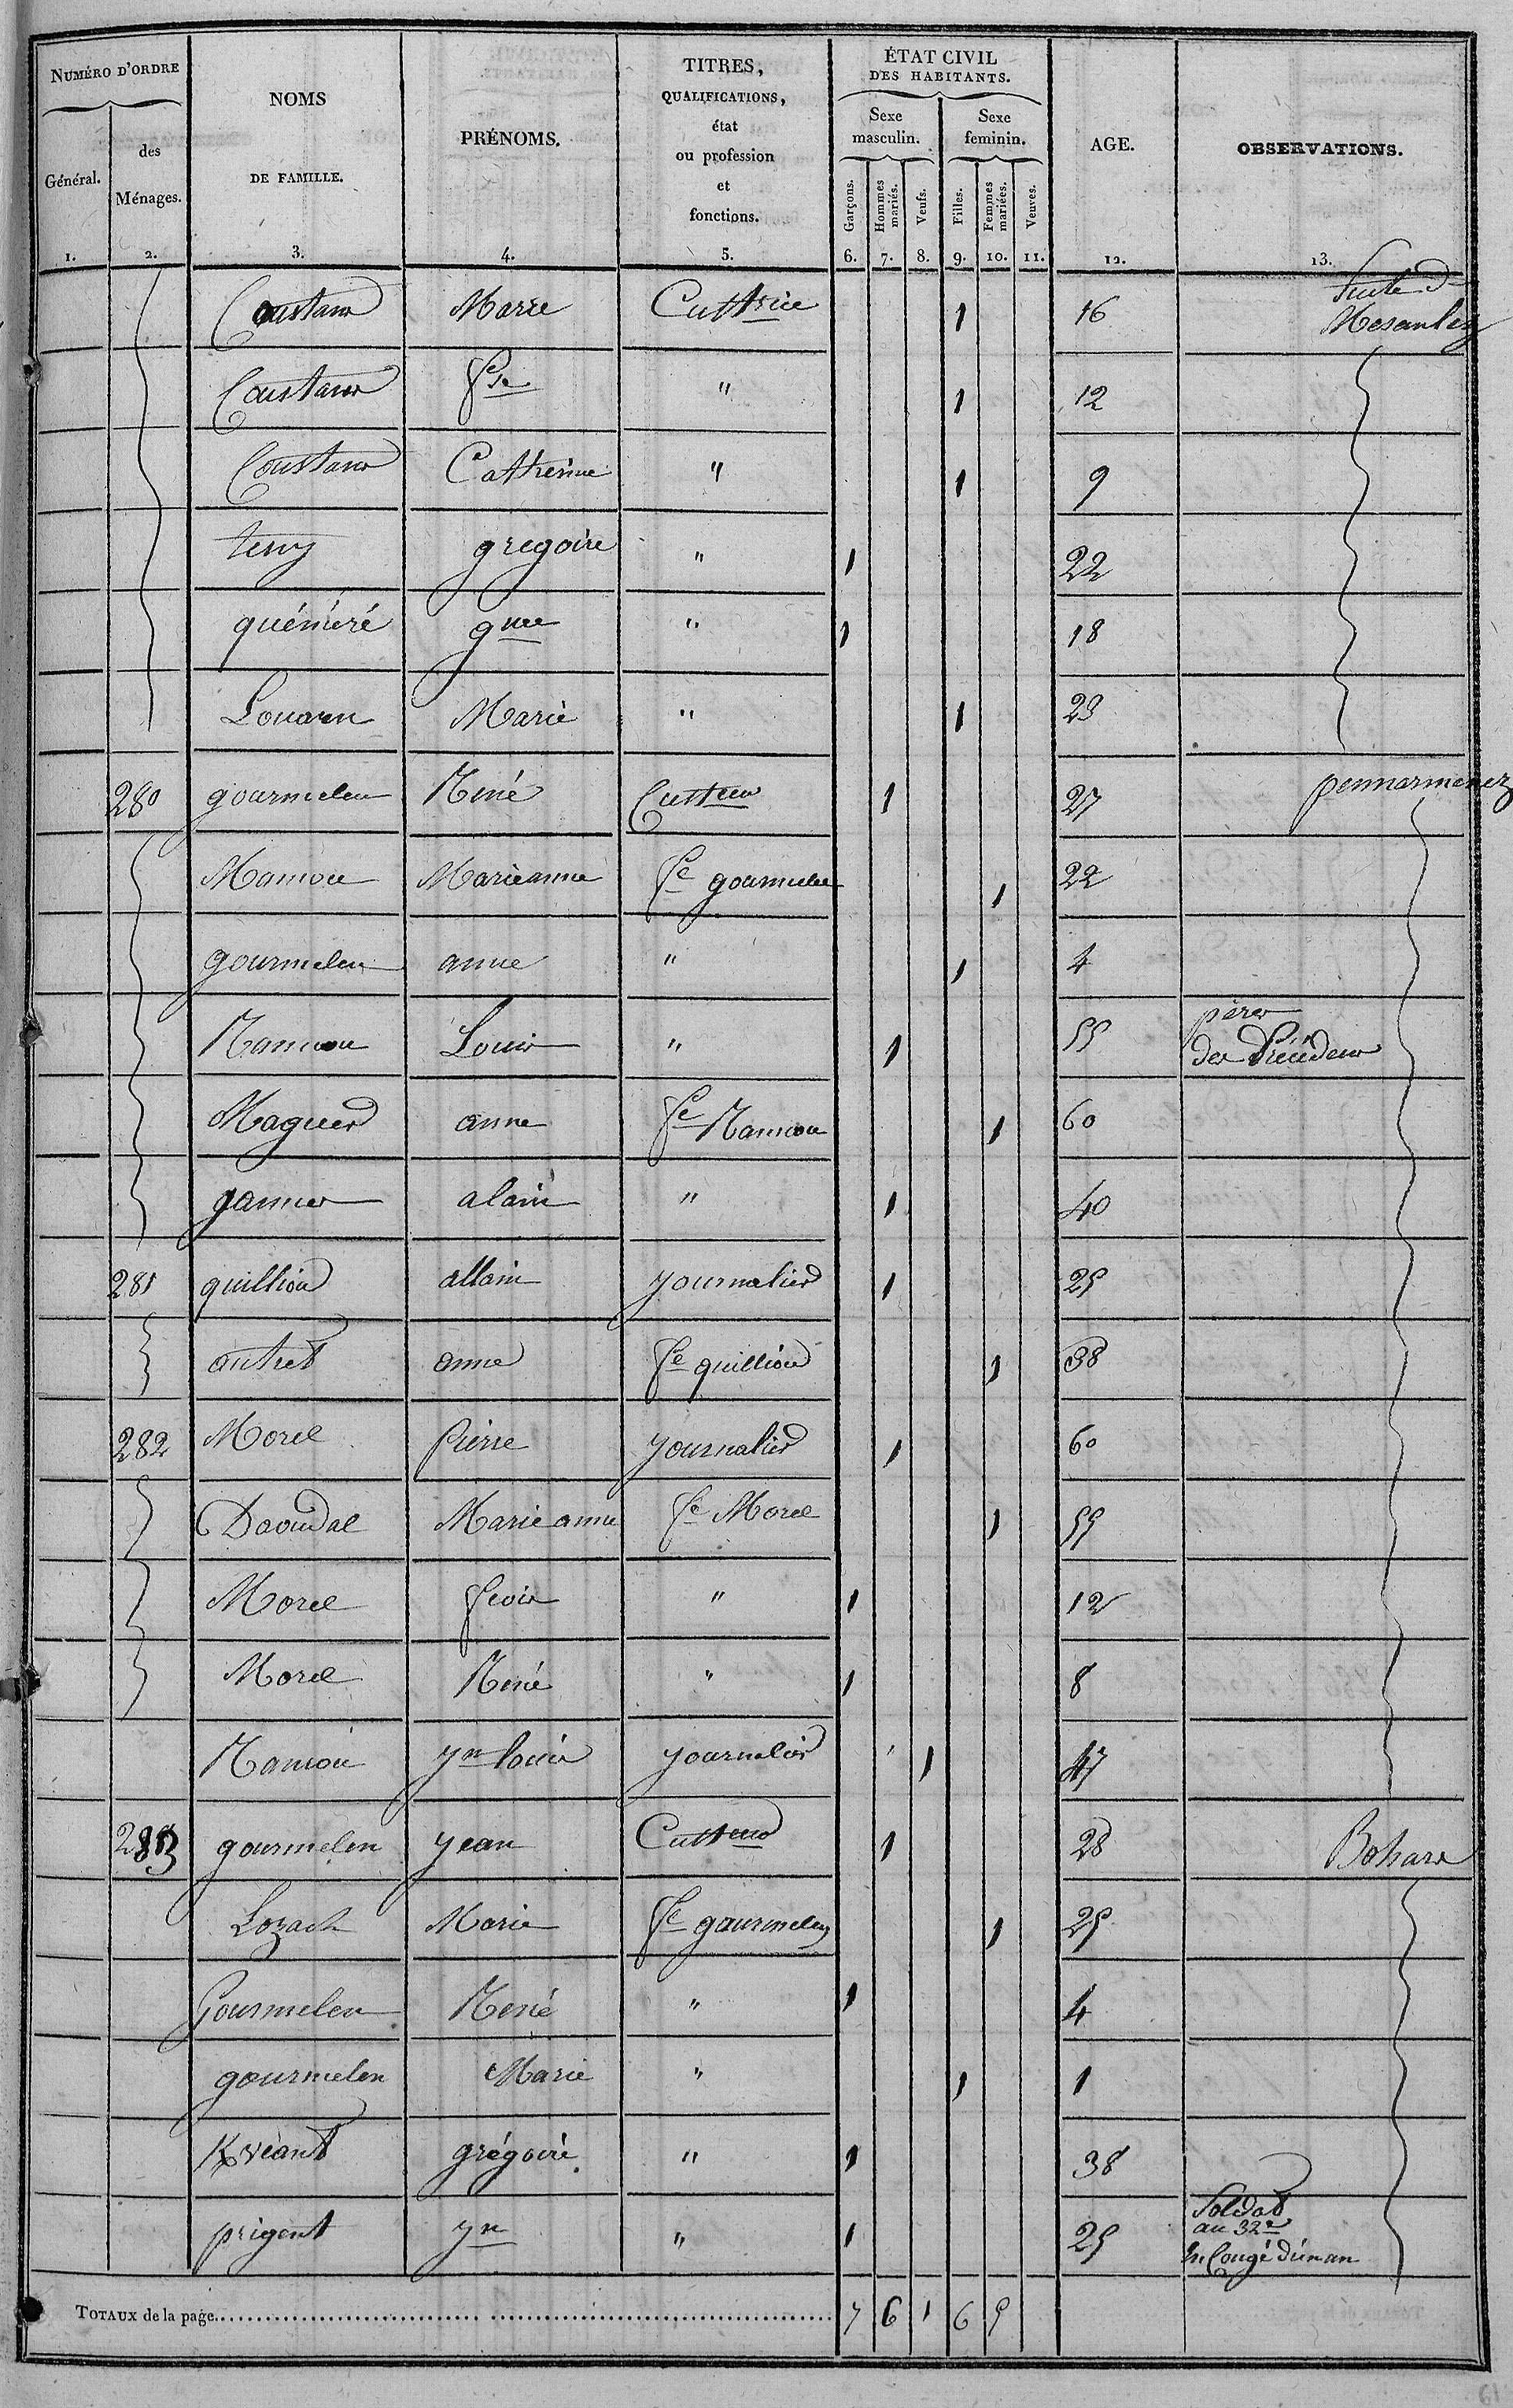 NUMÉRO D'ORDRE
Général.
des Ménages.
NOMS
DE FAMILLE.
PRÉNOMS.
TITRES,
QUALIFICATIONS,
état
ou profession
et
fonctions.
ÉTAT CIVIL
DES HABITANTS.
Sexe masculin.
Sexe feminin.
Garçons.
Hommes mariés.
Veufs.
Filles.
Femmes mariées.
Veuves.
AGE.
OBSERVATIONS.
1. 2. 3. 4. 5. 6. 7. 8. 9. 10. 11. 12. 13.
Coustans Marie Cultrice 1 16 Suite d
Mesanlez
Coustans fse " 1 12
Coustans Catherine " 1 9
gregoire " 1 22
quéméré gme " 1 18
Louarn Marie " 1 23
280 gourmelen René Culteur 1 27 pennarmenez
Marieanne fe gourmelen 1 22
gourmelen anne " 1 4
Louis " 1 55 père
des Précédens
Maguer anne fe 1 60
alain " 1 40
281 quilliou allain journalier 1 25
autret anne fe quilliou 1 38
282 Morel Pierre journalier 1 60
Daoudal Marie anne fe Morel 1 55
Morel fcois " 1 12
Morel René " 1 8
yn louis journalier 1 47
283 gourmelen jean Culteur 1 28 Bohars
Lozach Marie fe gourmelen 1 25
Gourmelen René " 1 4
gourmelen Marie " 1 1
Kvéant grégoire " 1 38
prigent yn " 1 25 Soldat
au 32e
en Congé d'un an
TOTAUX de la page 7 6 1 6 5